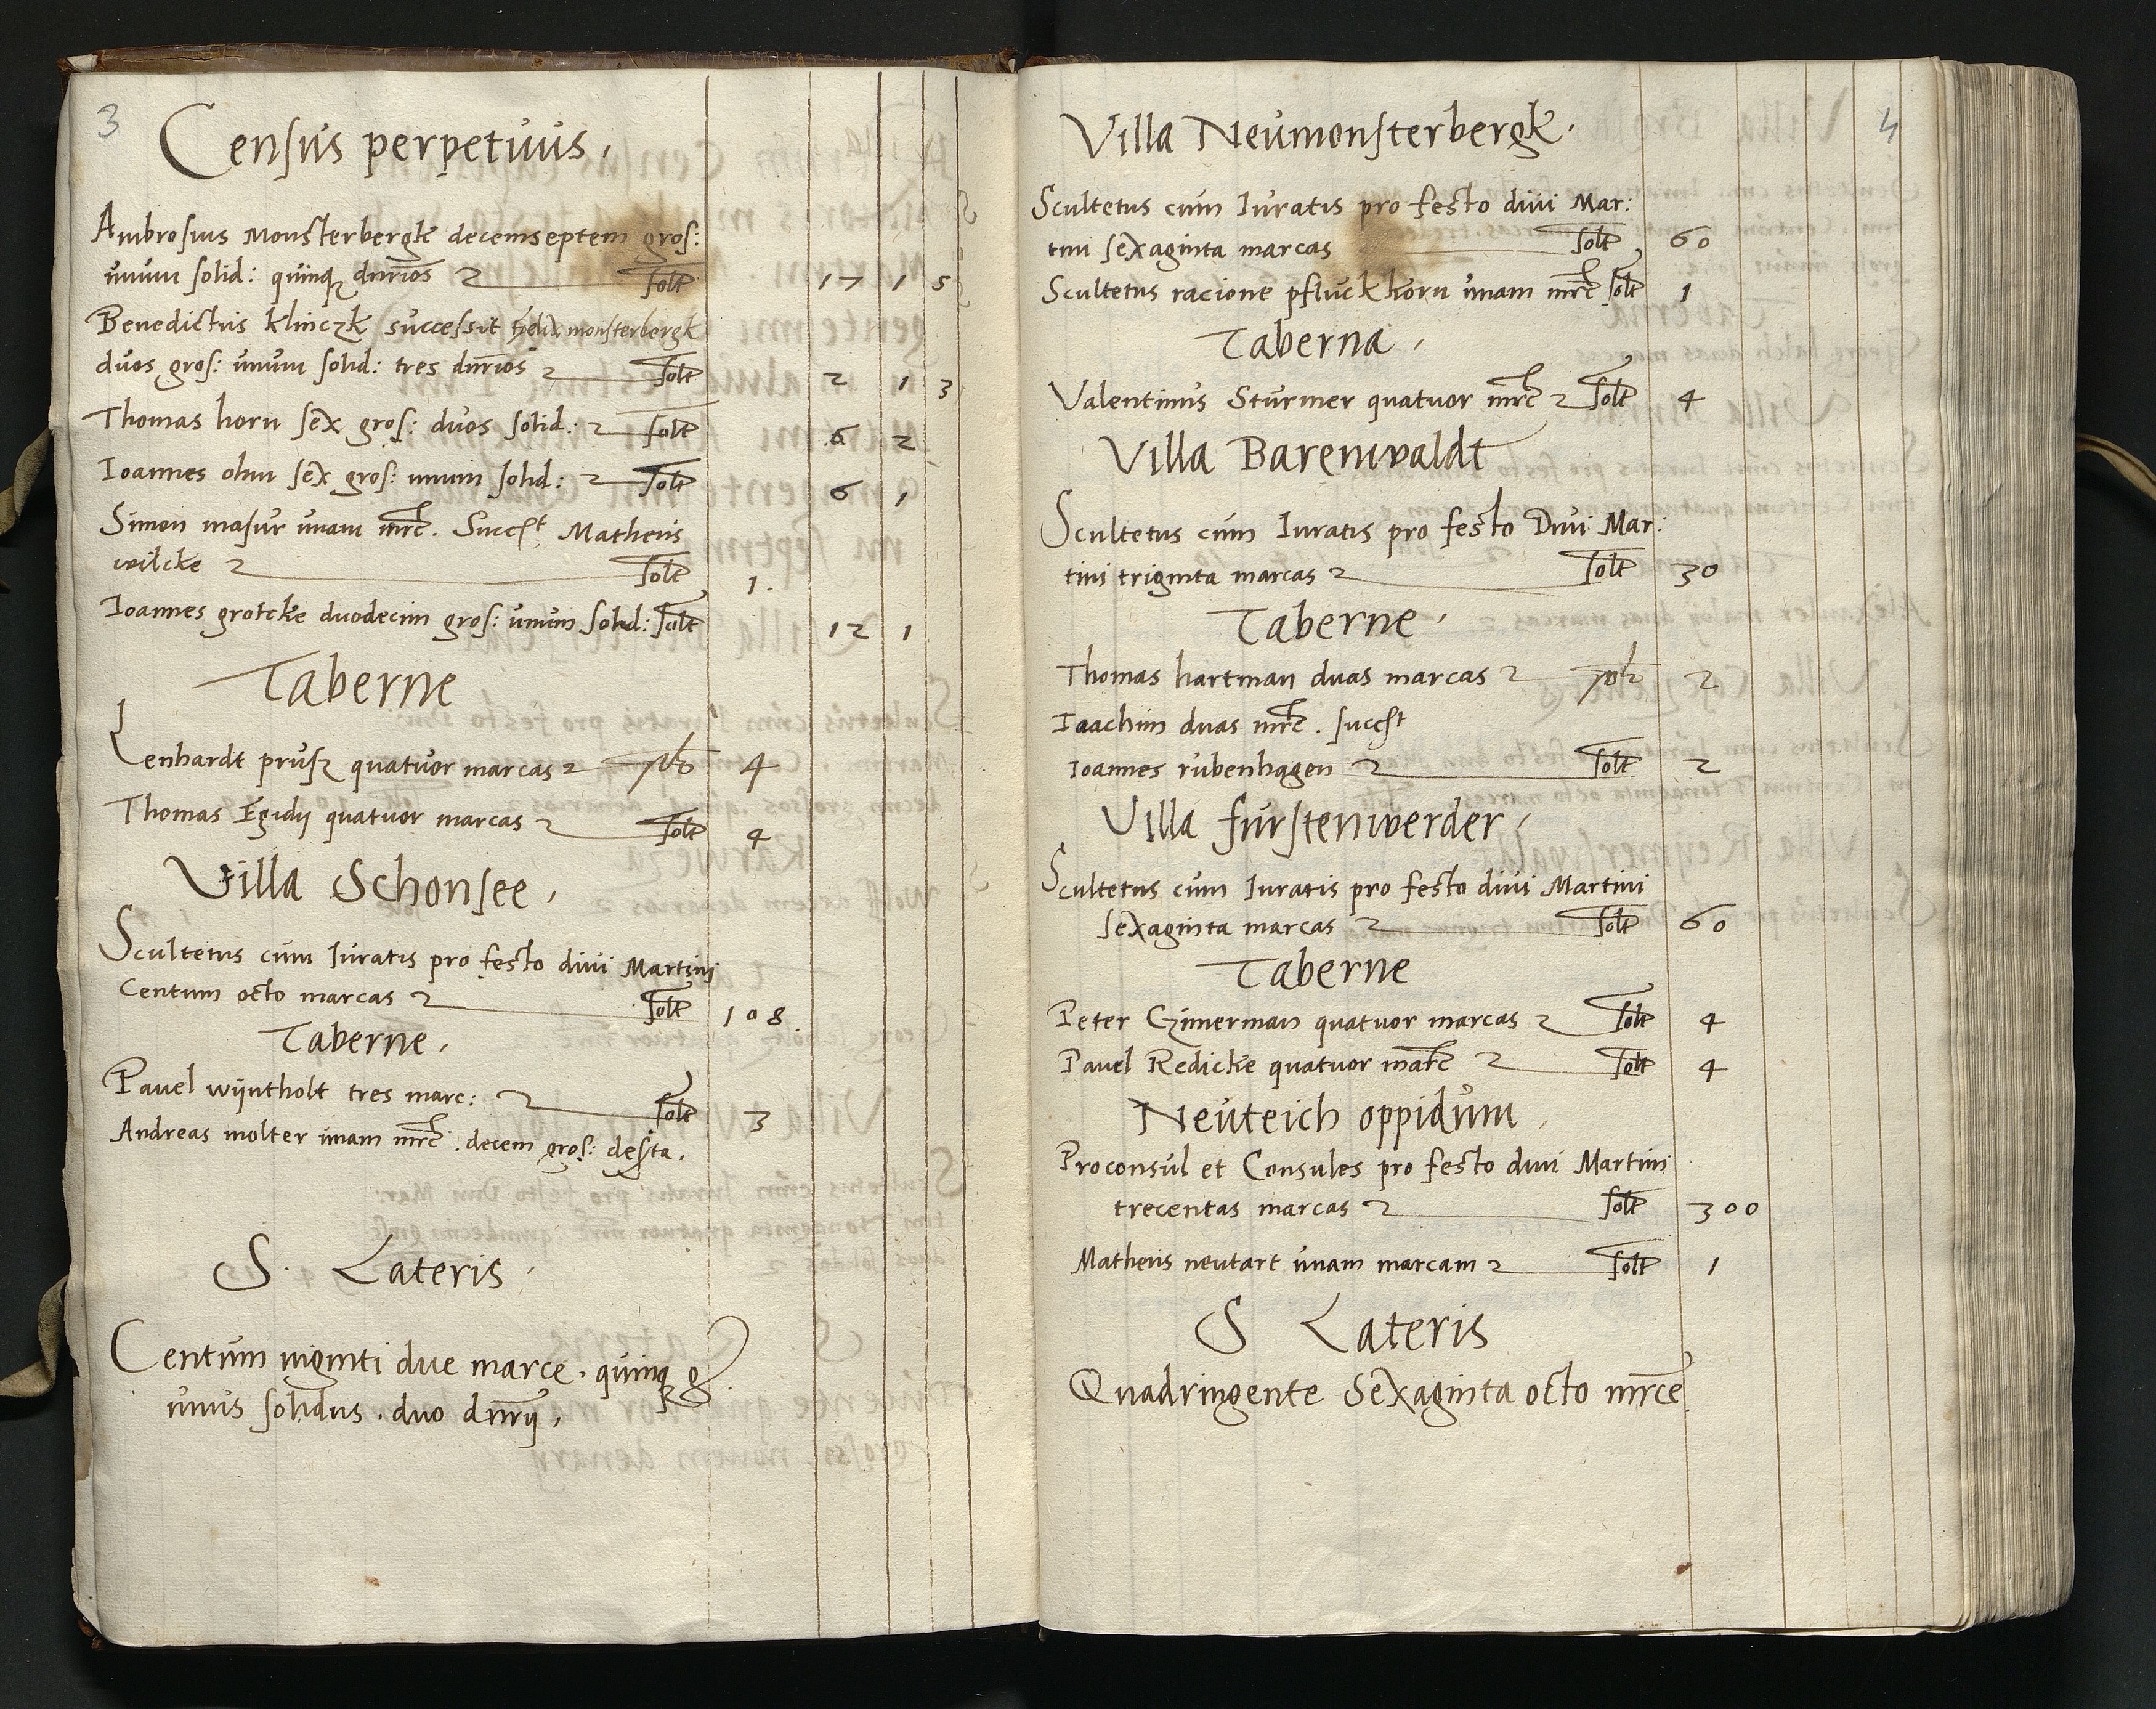 3
Census perpetuus.
Ambrosius Monsterbergk decemseptem gros:
unum solid: quinq dnrios solt 17 1 5
Benedictus klinczk successit Felix monsterbergk
duos gros: unum solid: tres dnrios solt 2 1 3
Thomas horn sex gros: duos solid: solt 6 2
Ioannes ohm sex gros: unum solid: solt 6 1
Simon masur unam mrc. Succst Matheus
wilcke solt 1.
Ioannes grotcke duodecim gros: unum solid: solt 12 1
Taberne
Lenhardt prusz quatuor marcas 4
Thomas Egidij quatuor marcas solt 4
Villa Schonsee.
Scultetus cum Iuratis pro festo divi Martinj
Centum octo marcas solt 108
Taberne.
Pauel wijntholt tres marc: solt 3
Andreas molter unam mrc. decem gros: desta.
S. Lateris.
Centum viginti due marce. quinq g.
unus solidus. duo dnrij.
4
Villa Neumonsterbergk.
Scultetus cum Iuratis pro festo divi Mar:
tini sexaginta marcas solt 60
Scultetus racione pfluckkorn unam mrc solt 1
Taberna.
Valentinus Sturmer quatuor mrc solt 4
Villa Barenwaldt
Scultetus cum Iuratis pro festo Divi Mar:
tini triginta marcas solt 30
Taberne.
Thomas hartman duas marcas 2
Ioachim duas mrc. succst
Ioannes rubenhagen solt 2
Villa furstenwerder.
Scultetus cum Iuratis pro festo divi Martini
sexaginta marcas solt 60
Taberne
Peter Czimerman quatuor marcas solt 4
Pauel Redicke quatuor marc solt 4
Neuteich oppidum.
Proconsul et Consules pro festo divi Martini
trecentas marcas solt 300
Matheus neutart unam marcam solt 1
S Lateris
Quadringente Sexaginta octo mrce.